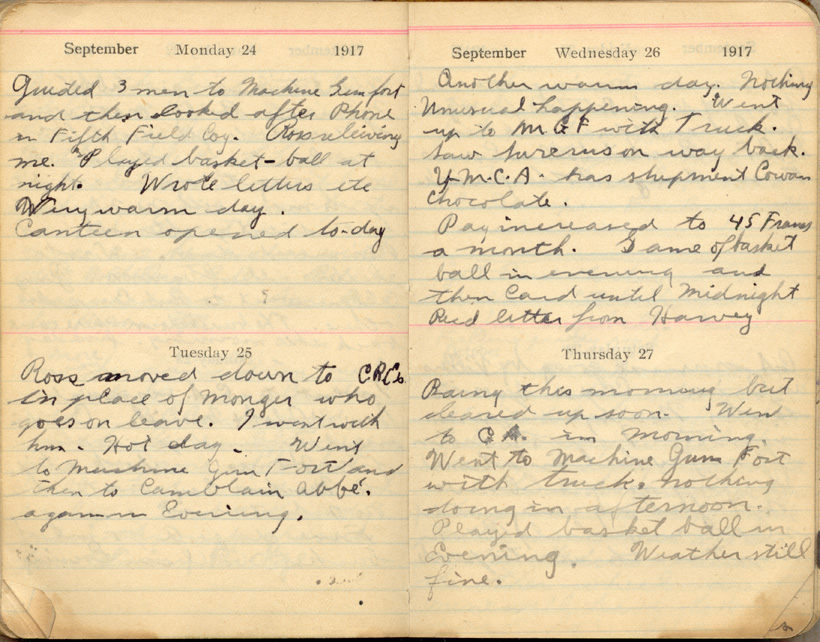 September Monday 24 1917
Guided 3 men to Machine Gun fort
and then looked after Phone
in Fifth Field Coy. Ross releiving
me. Played basket-ball at
night. Wrote letters etc
Very warm day.
Canteen opened to-day
Tuesday 25
Ross moved down to
in place of Monger who
goes on leave. I went with
him. Hot day. Went
to Machine Gun Fort and
then to Camblain Abbé.
again in Evening.
September Wednesday 26 1917
Another warm day. Nothing
Unusual happening. Went
up to M G F with Truck.
Saw on way back.
Y.M.C.A. has shipment Cowan
Chocolate.
Pay increased to 45 Francs
a month. Game of basket
ball in evening and
then Card until Midnight
Recd letter from Harvey
Thursday 27
Rainy this morning but
cleared up soon. Went
to C.A. in morning.
Went to Machine Gun Fort
with truck. nothing
doing in afternoon.
Played basket ball in
Evening. Weather still
fine.